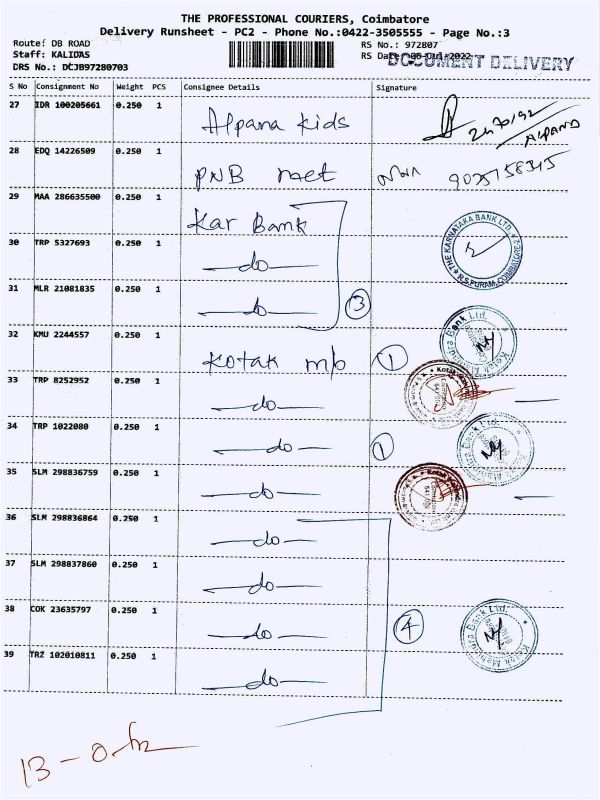 THE PROFESSIONAL COURIERS, Coimbatore
Delivery Runsheet - PC2 - Phone No.:0422-3505555 - Page No.:3
Route: DB ROAD
RS No.: 972807
Staff: KALIDAS
RS Date: 06-Jul-2022
DOCUMENT DELIVERY
DRS No.: DCJB97280703
S No Consignment No Weight PCS Consignee Details Signature
27 IDR 100205661 0.250 1 Alpana kids
ALPANA
28 EDQ 14226509 0.250 1 PNB
29 MAA 286635500 0.250 1 Kar Bank
THE KARNATAKA BANK LTD. R.S.PURAM, COIMBATORE
30 TRP 5327693 0.250 1 —do—
31 MLR 21081835 0.250 1 —do— 3
32 KMU 2244557 0.250 1 Kotak 1
Kotak Mahindra Bank Ltd.
33 TRP 8252952 0.250 1 —do—
34 TRP 1022080 0.250 1 —do— 1
35 SLM 298836759 0.250 1 —do—
36 SLM 298836864 0.250 1 —do—
37 SLM 298837860 0.250 1 —do—
38 COK 23635797 0.250 1 —do— 4
Kotak Mahindra Bank Ltd.
39 TRZ 102010811 0.250 1 —do—